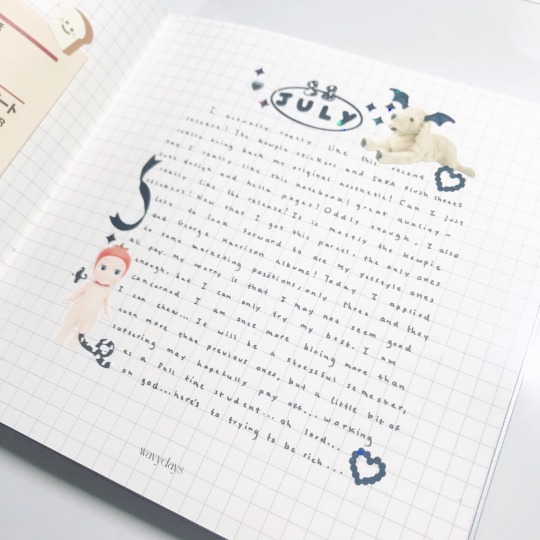 ート
JULY
I actually really like this recent
release! The kewpie stickers and IKEA plush sheets
really bring back my original aesthetic! Can I just
say I really like this notebook! great quality -
with design and extra pages! Oddly enough, I also
really like the release? It is mostly the kewpie
stickers! Now that I got this parcel, the only ones
left to look forward to are my yssstyle ones
and George Harrison albums! Today I applied
to some marketing positions, only three and they
ok pay. my worry is that I may not seem good
enough, but I can only try my best. I am
concerned I am once more biting more than
I can chew... It will be a stressful semester,
even more than previous ones, but a little bit of
suffering may hopefully pay off... working
as a full time student... oh lord...
oh god... here's to trying to be rich...
wavydays